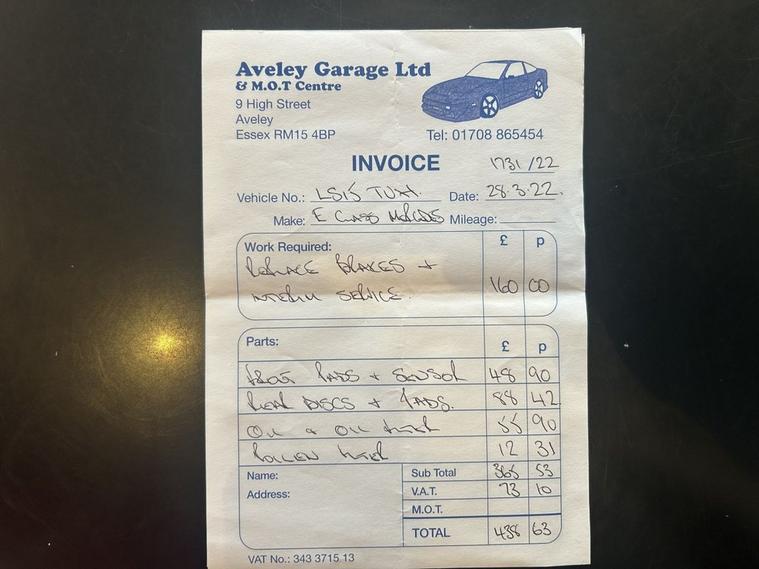 Aveley Garage Ltd
& M.O.T Centre
9 High Street
Aveley
Essex RM15 4BP
Tel: 01708 865454
INVOICE 1731/22
Vehicle No.: LS15 TUH. Date: 28.3.22.
Make: E CLASS MERCEDES Mileage:
Work Required: £ p
REPLACE BRAKES +
INTERIM SERVICE. 160 00
Parts: £ p
FRONT PADS + SENSOR 48 90
REAR DISCS + PADS. 88 42
OIL & OIL FILTER 55 90
POLLEN FILTER 12 31
Name: Sub Total 365 53
Address: V.A.T. 73 10
M.O.T.
TOTAL 438 63
VAT No.: 343 3715 13